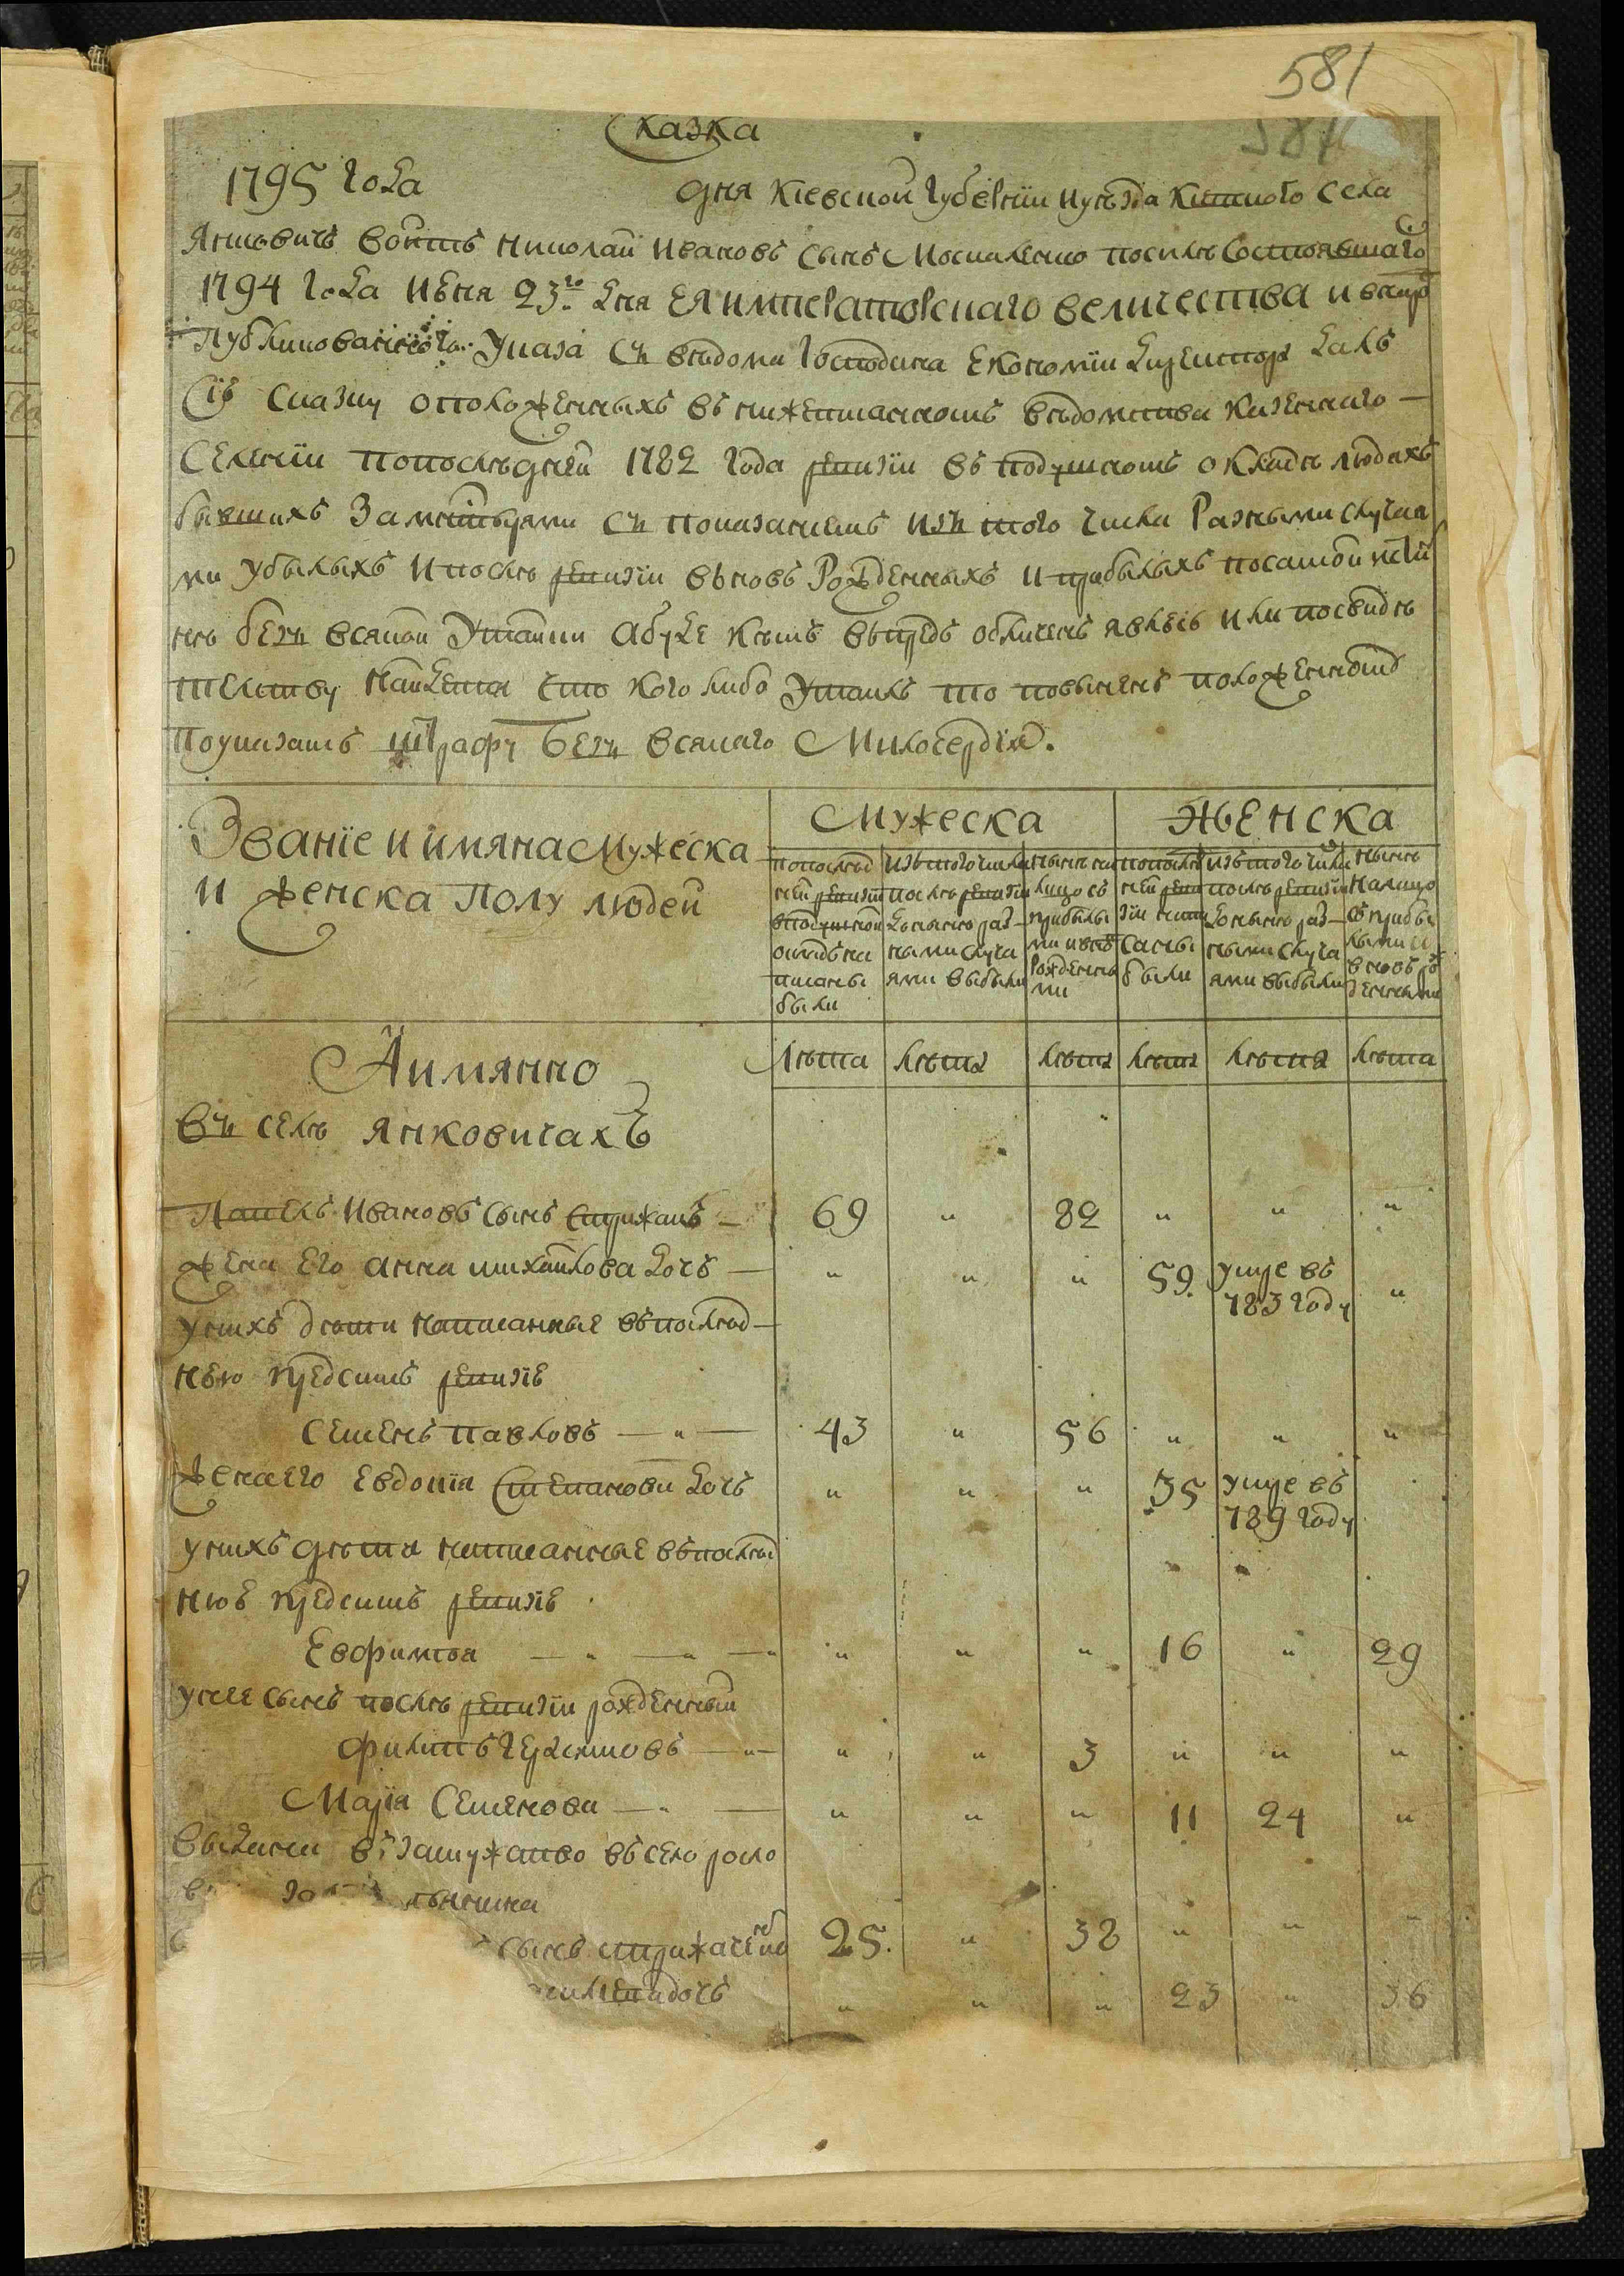 581
581
Сказка
1795 года дня Кіевской губерніи и уѣзда казенного села
Янковичъ войтъ Николай Ивановъ сынъ Москаленко посилѣ состоявшагося
1794 года июня 23го дня ЕЯ императорскаго величества и
публикованного указа съ вѣдома господина економіи директора далъ
сію сказку о положенныхъ въ нижеписанномъ вѣдомства казенного
селеніи по последней 1782 года ревизіи въ подушномъ окладѣ людяхъ
бывшихъ за съ показаниемъ изъ того числа разными случая
ми убылыхъ и послѣ ревизіи вновь рожденныхъ и прибылыхъ по самой исти
нѣ безъ всякой утайки а буде кѣмъ впредь обличенъ явлюсь или по свидѣ
телству найдется что кого либо утаилъ то повиненъ положенному
по указамъ штрафу безъ всякаго милосердія.
Званіе и имяна мужеска
и женска полу людей
Мужеска
Женска
по послѣд
ней ревизіи
в подушной
окладъ на
писаны
были
изъ того числа
послѣ ревизіи
до нынѣ раз
ными случа
ями выбыли
нынѣ на
лицо съ
прибылы
ми и вновь
рожденны
ми
по послѣд
ней реви
зіи напи
саны
были
изъ того числа
послѣ ревизіи
до нынѣ раз
ными случа
ями выбыли
нынѣ
налицо
съ прибы
лыми и
вновь ро
жденными
А имянно
лѣта лѣта лѣта лѣта лѣта лѣта
въ селѣ Янковичахъ
Павелъ Ивановъ сынъ Стрижакъ — 69 " 82 " " "
жена его Анна Михайлова дочь — " " " 59. умре въ 783 году "
у нихъ дѣти написанные въ послѣд
нею предсимъ ревизіе
Семенъ Павловъ — " — 43 " 56 " " "
жена его Евдокіа Степанова дочь " " " 35 умре въ 789 году
у нихъ дѣти написанные въ послѣд
нюе предсимъ ревизіе
ЕвфимІа — " — " — " " " " 16 " 29
у нее сынъ послѣ ревизіи рожденный
Филипъ Герасимовъ — " — " " 3 " " "
Марія Семенова — " — " " " 11 24 "
выдана въ замужство въ село
сынъ Стрижаченко 25. " 38 " " "
дочь " " " 23 " 36